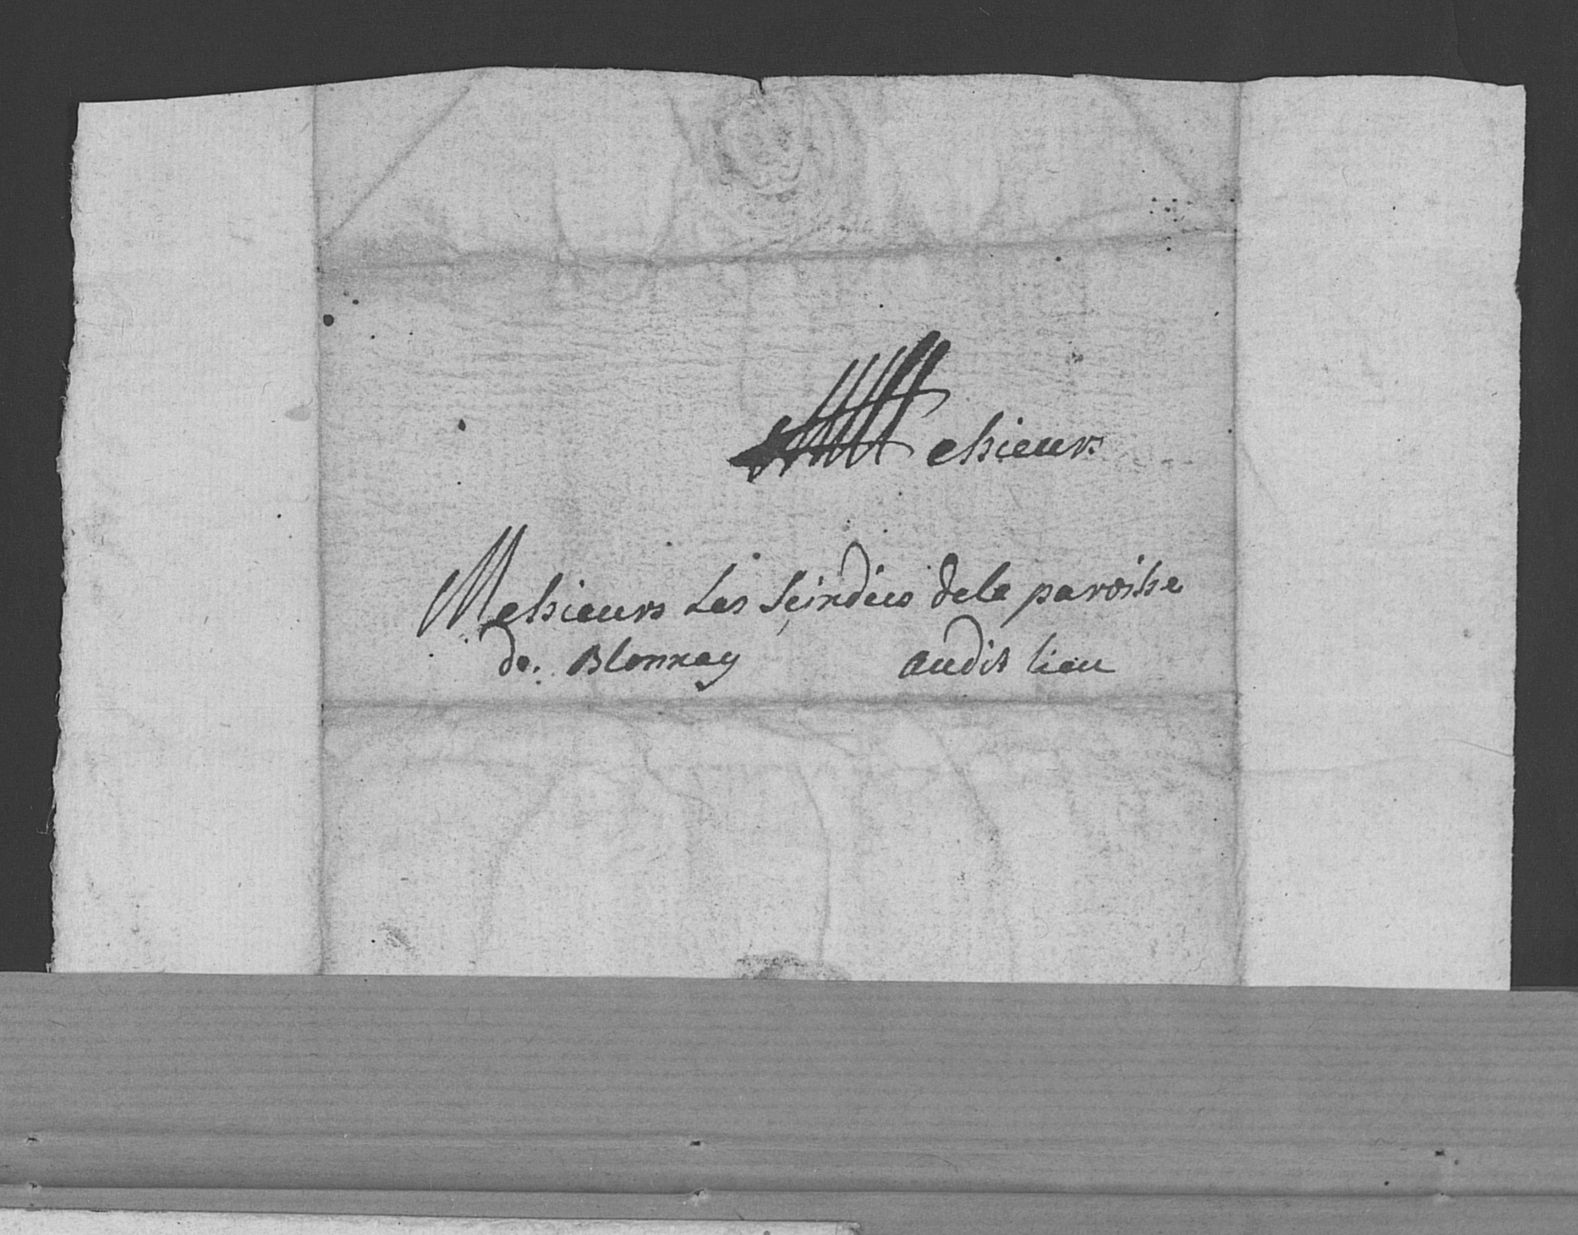 Messieurs
Messieurs Les Seindics de la paroisse
de Blonnay audit lieu